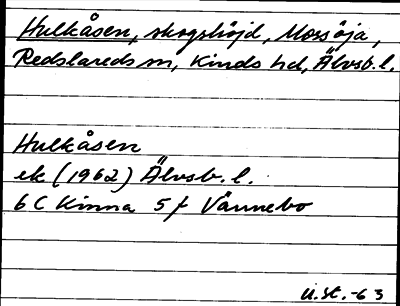 Hulkåsen, skogshöjd, Mossöja,
Redslareds sn, Kinds hd, Älvsb. l.
Hulkåsen
ek (1962) Älvsb. l.
6 C Kinna 5 f Vännebo
U. St. -63